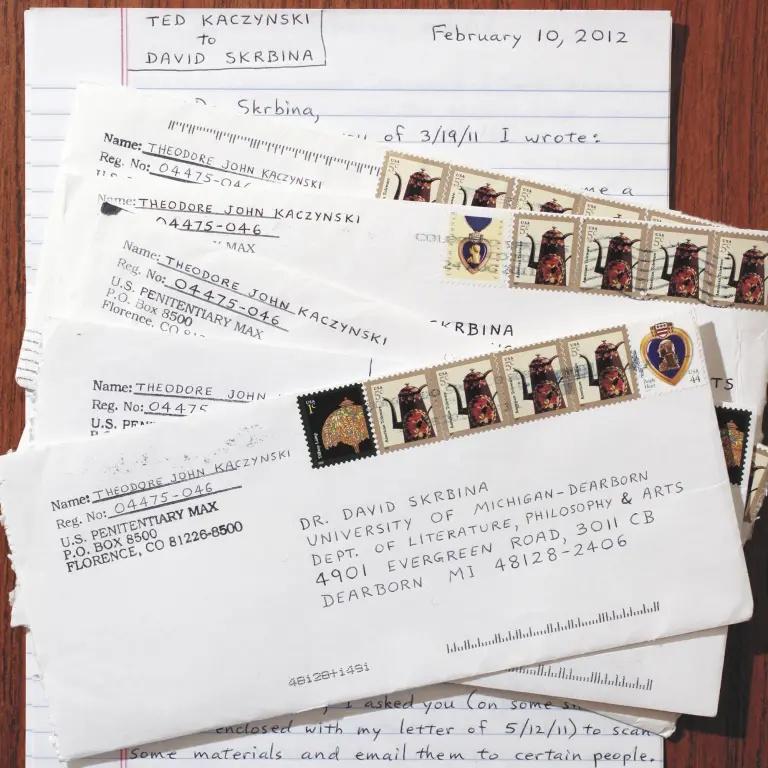 TED KACZYNSKI
to
DAVID SKRBINA
February 10, 2012
Dr. Skrbina,
of 3/19/11 I wrote:
me a
Name: THEODORE JOHN KACZYNSKI
Reg. No: 04475-046
U.S.
Name: THEODORE JOHN KACZYNSKI
04475-046
MAX
Name: THEODORE JOHN KACZYNSKI
Reg. No: 04475-046
U.S. PENITENTIARY MAX
P.O. Box 8500
Florence, CO
SKRBINA
TS
Name: THEODORE JOHN
Reg. No: 04475
U.S. PEN
Name: THEODORE JOHN KACZYNSKI
Reg. No: 04475-046
U.S. PENITENTIARY MAX
P.O. BOX 8500
FLORENCE, CO 81226-8500
USA
1c
Tiffany Lamp
Purple Heart
USA 44
DR. DAVID SKRBINA
UNIVERSITY OF MICHIGAN-DEARBORN
DEPT. OF LITERATURE, PHILOSOPHY & ARTS
4901 EVERGREEN ROAD, 3011 CB
DEARBORN MI 48128-2406
48128+1491
I asked you (on some
enclosed with my letter of 5/12/11) to scan
some materials and email them to certain people.